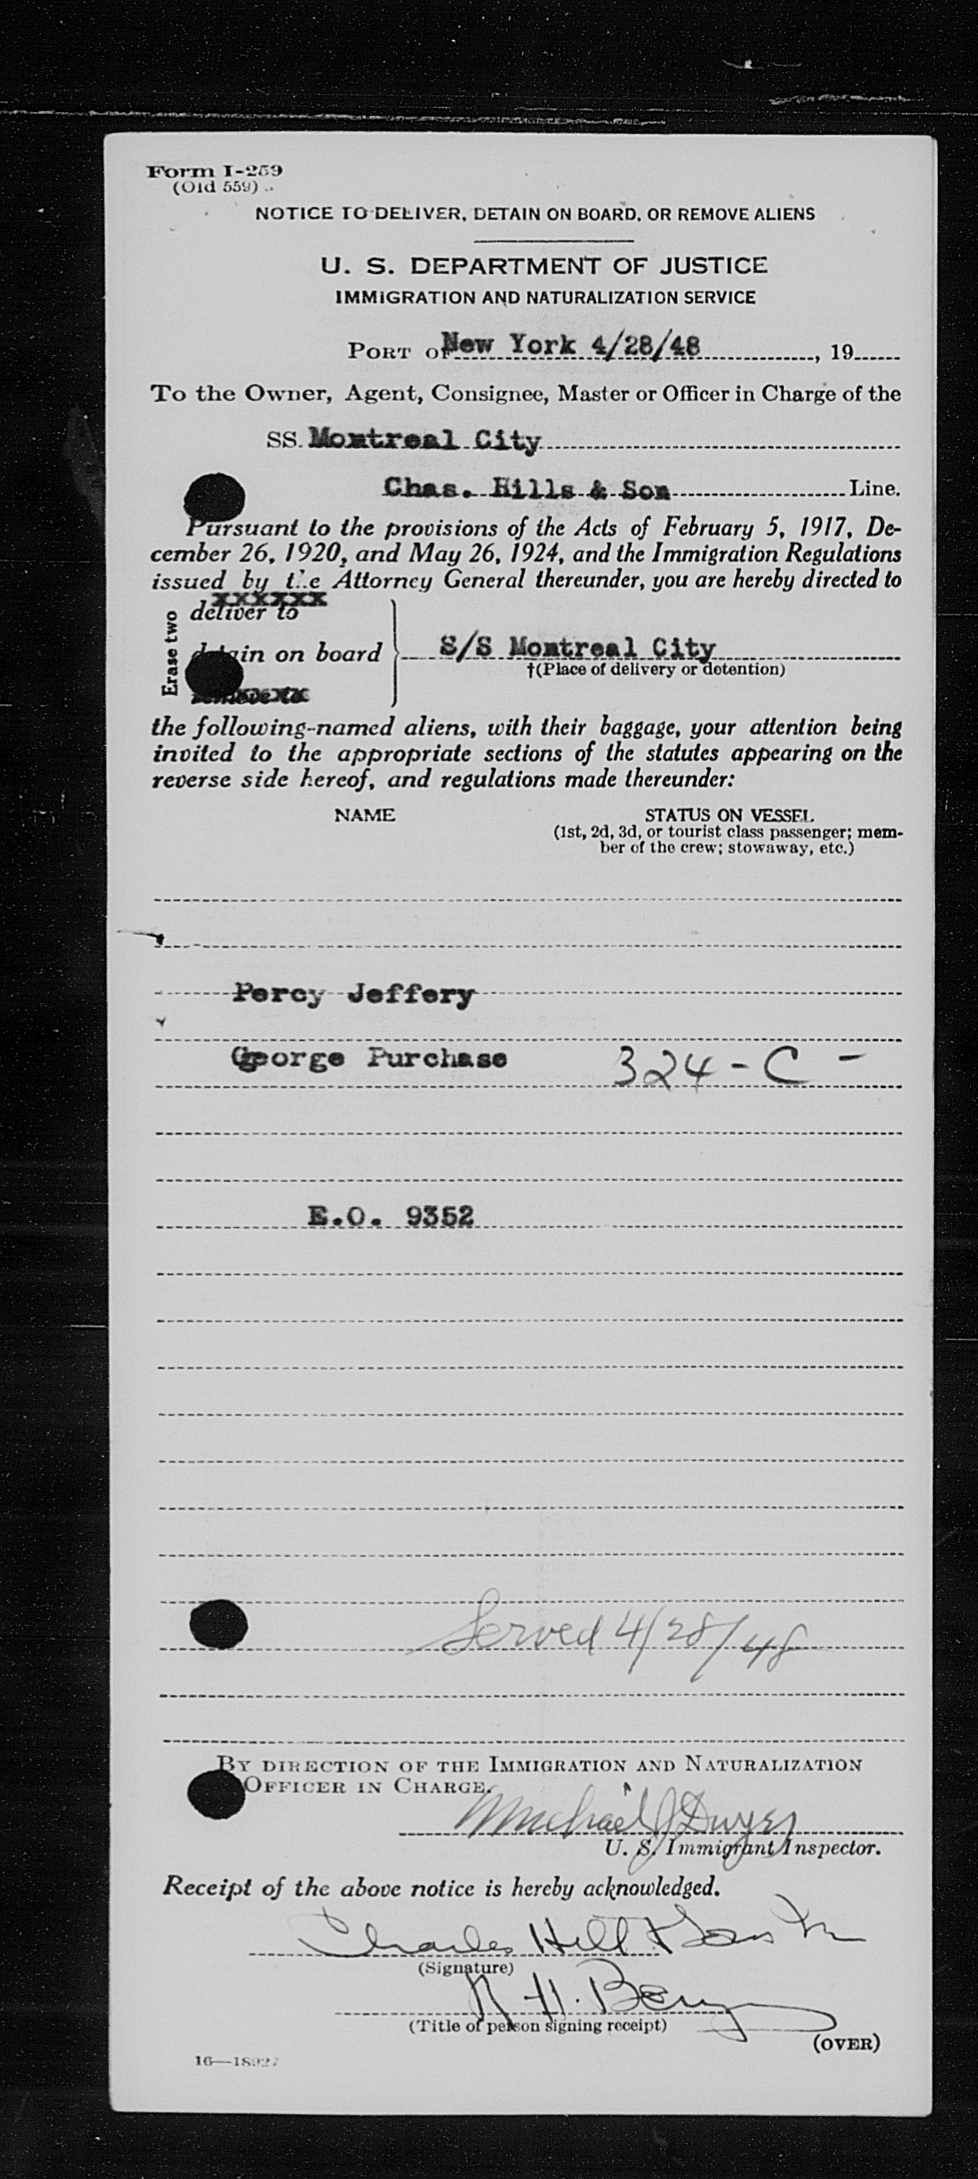 Form I-259
(Old 559)
NOTICE TO DELIVER, DETAIN ON BOARD, OR REMOVE ALIENS
U. S. DEPARTMENT OF JUSTICE
IMMIGRATION AND NATURALIZATION SERVICE
PORT OF New York 4/28/48, 19
To the Owner, Agent, Consignee, Master or Officer in Charge of the
SS. Montreal City
Chas. Hills & Son Line.
Pursuant to the provisions of the Acts of February 5, 1917, De-
cember 26, 1920, and May 26, 1924, and the Immigration Regulations
issued by the Attorney General thereunder, you are hereby directed to
xxxxxx
deliver to
Erase two
detain on board } S/S Montreal City
†(Place of delivery or detention)
remove to
the following-named aliens, with their baggage, your attention being
invited to the appropriate sections of the statutes appearing on the
reverse side hereof, and regulations made thereunder:
NAME STATUS ON VESSEL
(1st, 2d, 3d, or tourist class passenger; mem-
ber of the crew; stowaway, etc.)
Percy Jeffery
George Purchase 324-C -
E.O. 9352
Served 4/28/48
BY DIRECTION OF THE IMMIGRATION AND NATURALIZATION
OFFICER IN CHARGE.
Michael J Dwyer
U. S. Immigrant Inspector.
Receipt of the above notice is hereby acknowledged.
Charles Hill & Sons
(Signature)
H.
(Title of person signing receipt)
(OVER)
16—18927